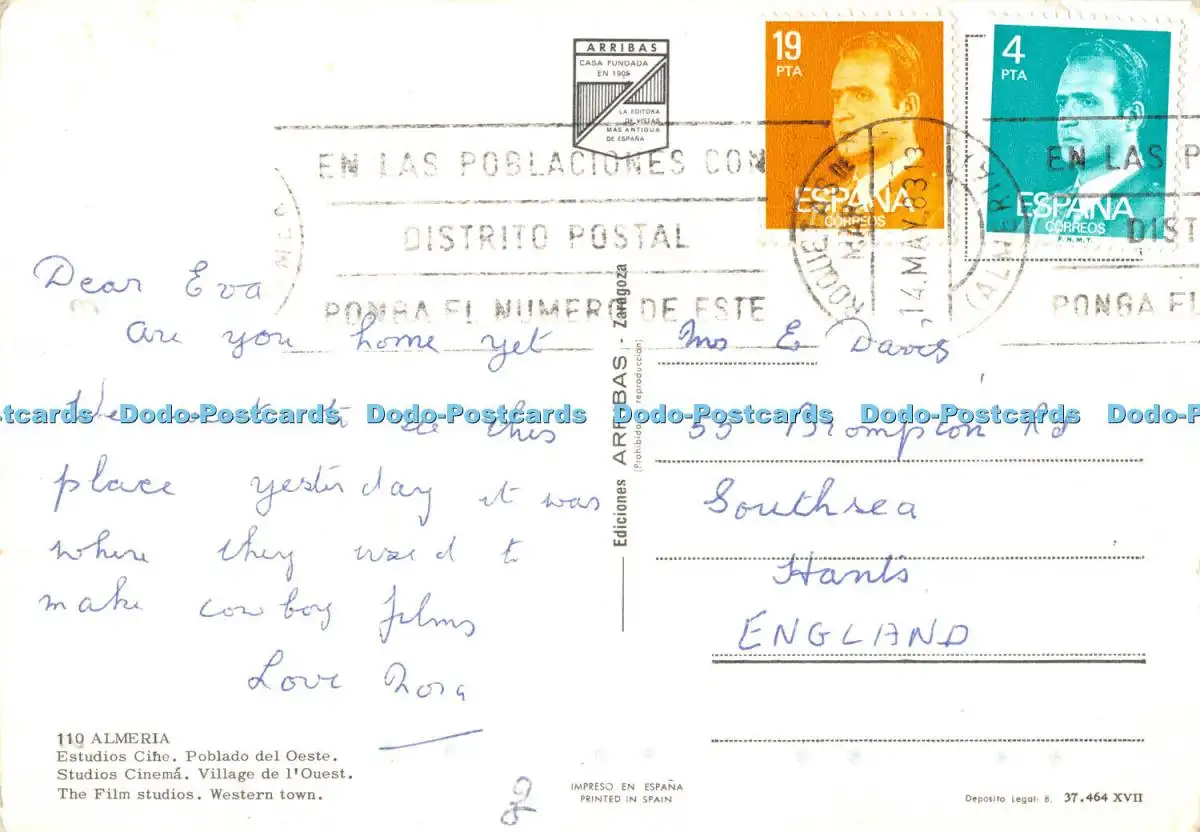 ARRIBAS
CASA FUNDADA
EN 1905
LA EDITORA
DE VISTAS
MAS ANTIGUA
DE ESPAÑA
19
PTA
ESPAÑA
CORREOS
4
PTA
ESPAÑA
CORREOS
F.N.M.T.
EN LAS POBLACIONES CON
DISTRITO POSTAL
PONGA EL NUMERO DE ESTE
ROQUETAS DE
MAR
14.MAY.83 13
(ALMERIA)
EN LAS P
DIST
PONGA EL
Dear Eva
are you home yet
We went to see this
place yesterday it was
where they used to
make cowboy films
Love Nora
Mrs E Davis
55 Brompton Rd
Southsea
Hants
ENGLAND
Ediciones ARRIBAS - Zaragoza
(Prohibida reproducción)
Dodo-Postcards Dodo-Postcards Dodo-Postcards Dodo-Postcards
110 ALMERIA
Estudios Cine. Poblado del Oeste.
Studios Cinemá. Village de l'Ouest.
The Film studios. Western town.
IMPRESO EN ESPAÑA
PRINTED IN SPAIN
Deposito Legal: B. 37.464 XVII